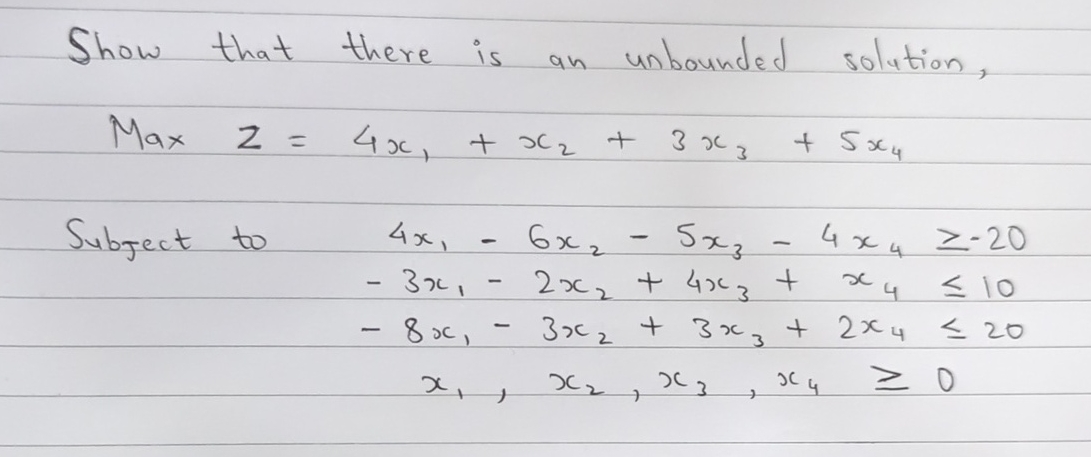 Show that there is an unbounded solution,
Max Z = 4x₁ + x₂ + 3x₃ + 5x₄
Subject to 4x₁ - 6x₂ - 5x₃ - 4x₄ ≥ -20
- 3x₁ - 2x₂ + 4x₃ + x₄ ≤ 10
- 8x₁ - 3x₂ + 3x₃ + 2x₄ ≤ 20
x₁, x₂, x₃, x₄ ≥ 0